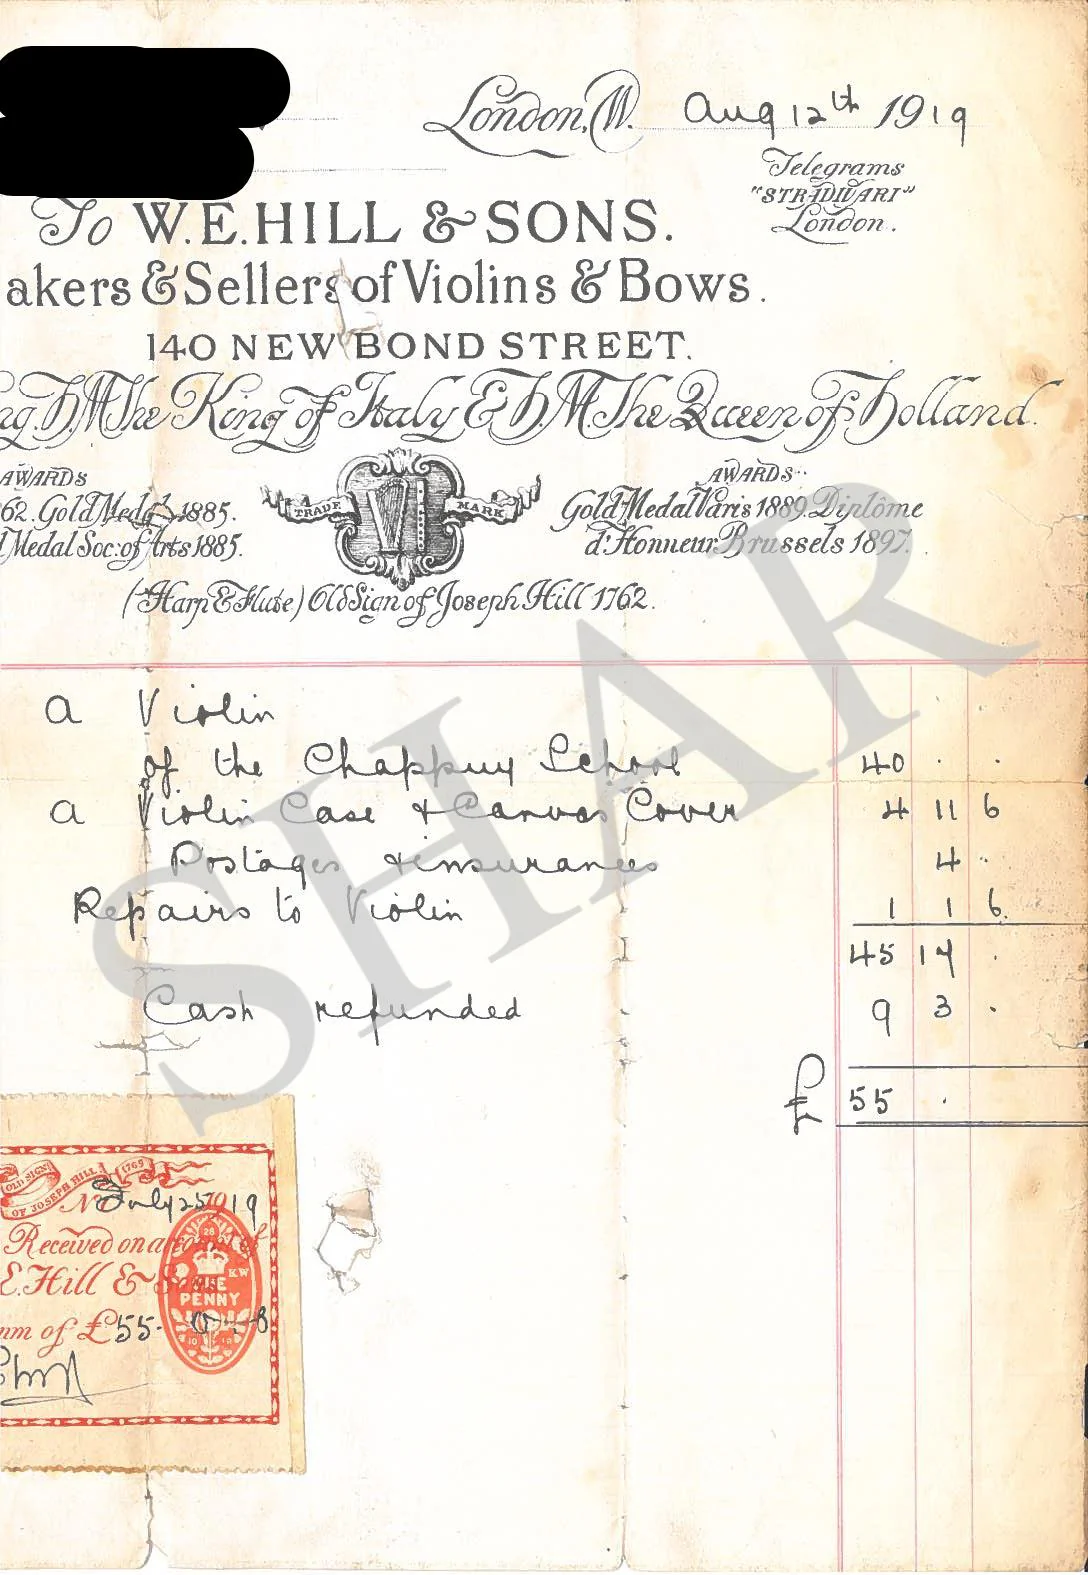 London, W. Aug 12th 1919
Telegrams
"STRADIVARI"
London.
To W. E. HILL & SONS.
akers & Sellers of Violins & Bows.
140 NEW BOND STREET.
ng. H.M. The King of Italy & H.M. The Queen of Holland.
AWARDS
62. Gold Medal 1885.
l Medal Soc: of Arts 1885.
TRADE MARK
AWARDS
Gold Medal Paris 1889. Diplôme
d'Honneur Brussels 1897.
(Harp & Flute) Old Sign of Joseph Hill 1762.
A Violin
of the Chappuy School 40 . .
A Violin Case & Canvas Cover 4 11 6
Postages & insurances 4 .
Repairs to Violin 1 1 6.
45 14 .
Cash refunded 9 3 .
£ 55 .
OLD SIGN OF JOSEPH HILL 1765
July 25 1919
Received on account of
E. Hill & Sons
um of £55
ONE
PENNY
SHAR